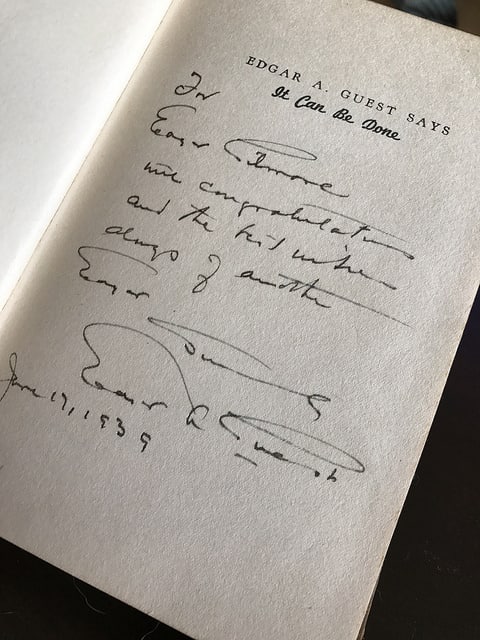 EDGAR A. GUEST SAYS
It Can Be Done
For
Edgar Gilmore
with congratulations
and the best wishes
always of another
Edgar
Edgar A Guest
June 17, 1939